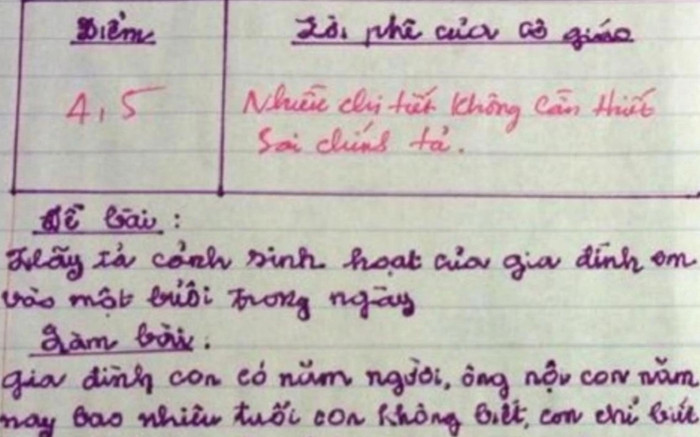 Điểm
Lời phê của cô giáo
4,5
Nhiều chi tiết không cần thiết
Sai chính tả.
Đề bài :
Hãy tả cảnh sinh hoạt của gia đình em
vào một buổi trong ngày
Làm bài :
gia đình con có năm người, ông nội con năm
nay bao nhiêu tuổi con không biết, con chỉ biết